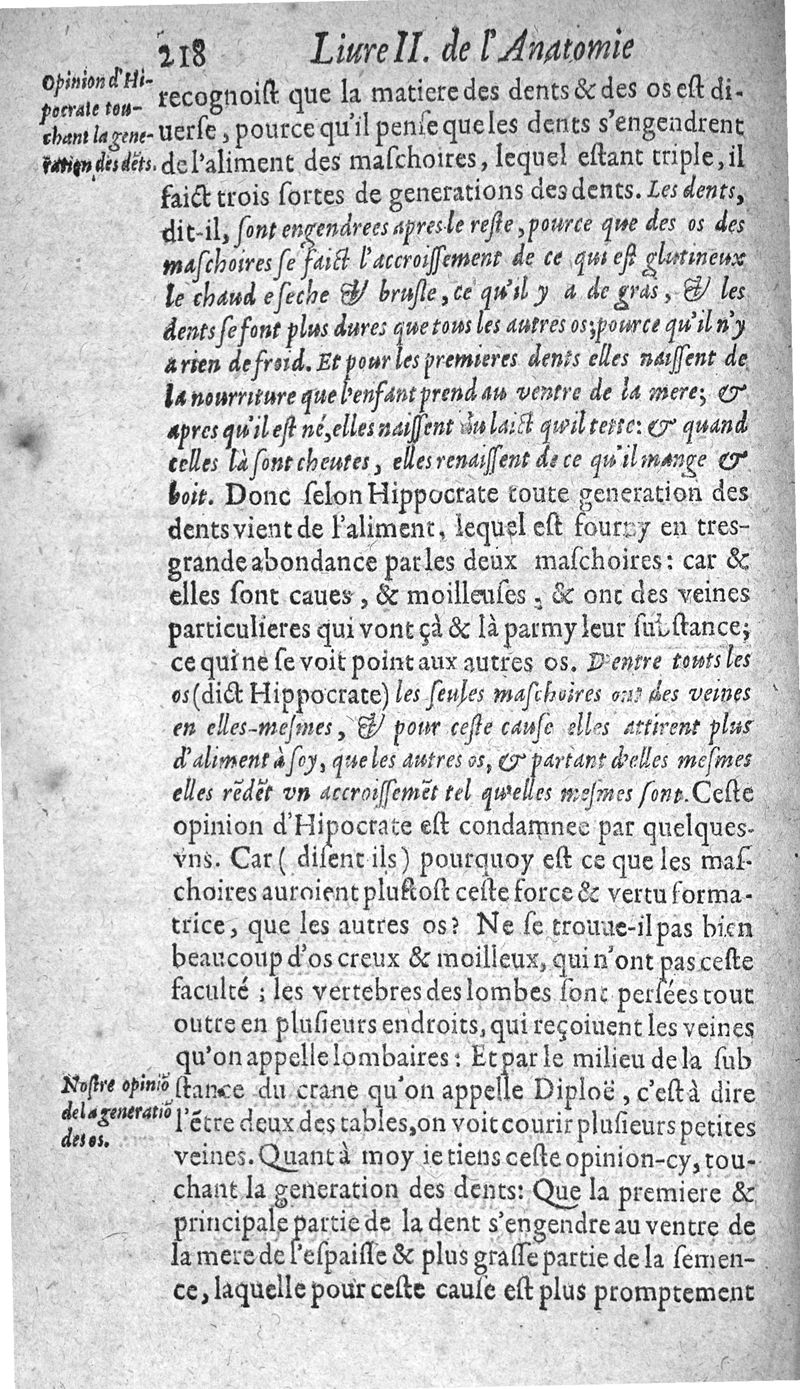 218 Liure II. de l'Anatomie
Opinion d'Hi-
pocrate tou-
chant la gene-
ration des dẽts.
recognoiſt que la matiere des dents & des os eſt di-
uerſe, pource qu'il penſe que les dents s'engendrent
de l'aliment des maſchoires, lequel eſtant triple, il
faict trois ſortes de generations des dents. Les dents,
dit-il, ſont engendrees apres le reſte, pource que des os des
maſchoires ſe faict l'accroiſſement de ce qui eſt glutineux
le chaud eſeche & bruſle, ce qu'il y a de gras, & les
dents ſe font plus dures que tous les autres os; pource qu'il n'y
a rien de froid. Et pour les premieres dents elles naiſſent de
la nourriture que l'enfant prend au ventre de la mere; &
apres qu'il eſt né, elles naiſſent du laict qu'il tette: & quand
celles là ſont cheutes, elles renaiſſent de ce qu'il mange &
boit. Donc ſelon Hippocrate toute generation des
dents vient de l'aliment, lequel eſt fourny en tres-
grande abondance par les deux maſchoires: car &
elles ſont caues, & moilleuſes, & ont des veines
particulieres qui vont çà & là parmy leur ſubſtance;
ce qui ne ſe voit point aux autres os. D'entre touts les
os (dict Hippocrate) les ſeules maſchoires ont des veines
en elles-meſmes, & pour ceſte cauſe elles attirent plus
d'aliment à ſoy, que les autres os, & partant d'elles meſmes
elles rẽdẽt vn accroiſſemẽt tel qu'elles meſmes ſont. Ceſte
opinion d'Hipocrate eſt condamnee par quelques-
vns. Car ( diſent ils) pourquoy eſt ce que les maſ-
choires auroient pluſtoſt ceſte force & vertu forma-
trice, que les autres os? Ne ſe trouue-il pas bien
beaucoup d'os creux & moilleux, qui n'ont pas ceſte
faculté; les vertebres des lombes ſont perſées tout
outre en pluſieurs endroits, qui reçoiuent les veines
qu'on appelle lombaires: Et par le milieu de la ſub
Noſtre opiniõ
de la generatiõ
des os.
ſtance du crane qu'on appelle Diploë, c'eſt à dire
l'ẽtre deux des tables, on voit courir pluſieurs petites
veines. Quant à moy ie tiens ceſte opinion-cy, tou-
chant la generation des dents: Que la premiere &
principale partie de la dent s'engendre au ventre de
la mere de l'eſpaiſſe & plus graſſe partie de la ſemen-
ce, laquelle pour ceſte cauſe eſt plus promptement